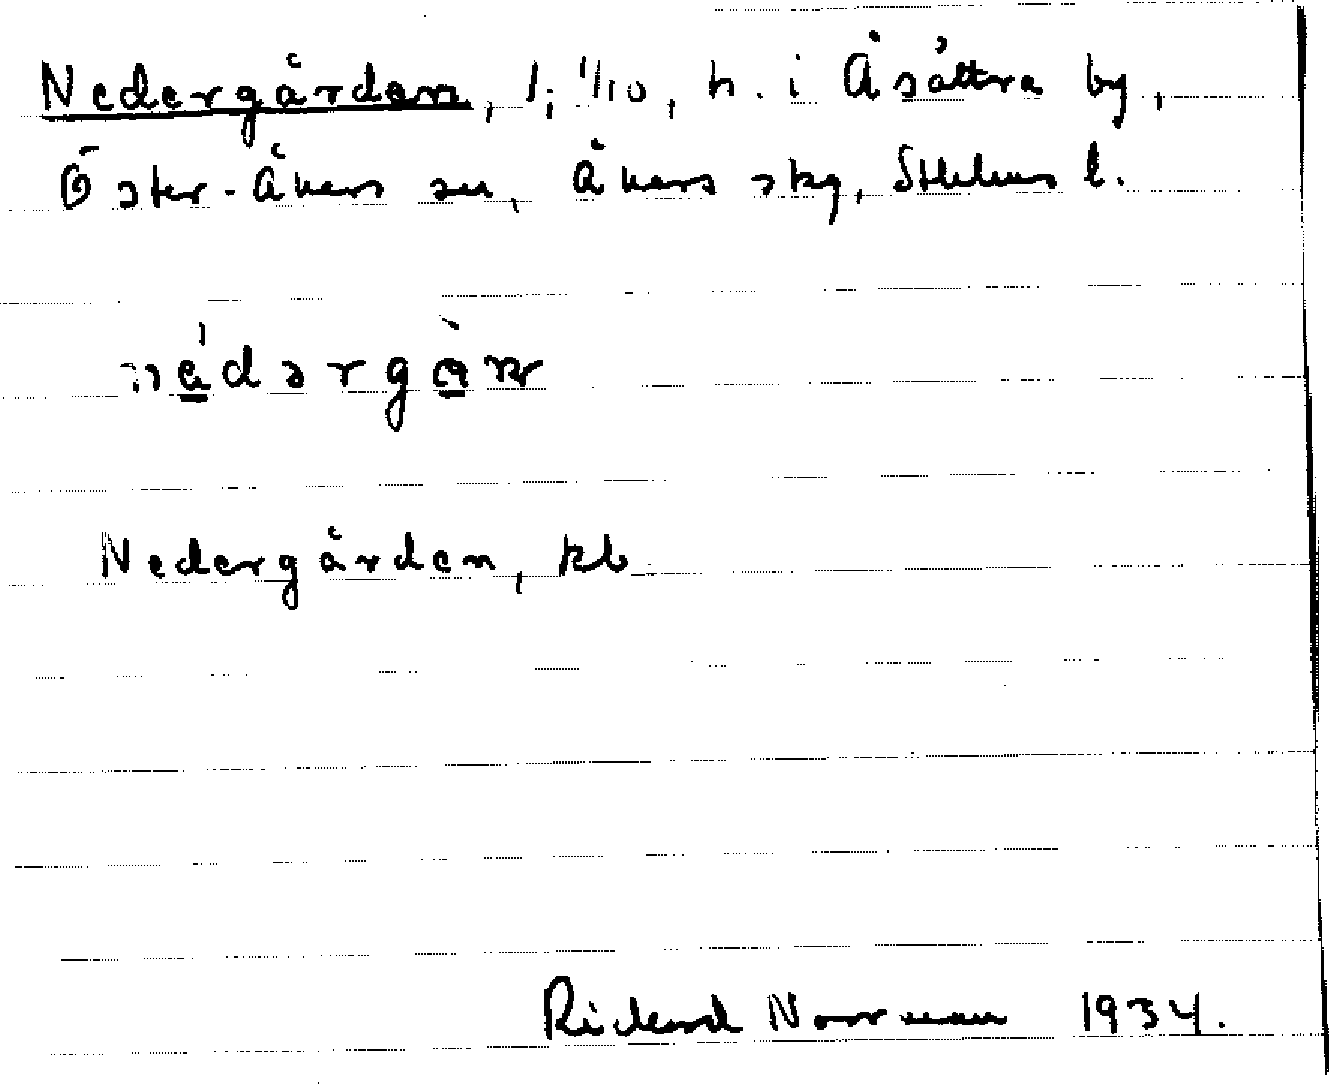 Nedergården, 1, 1/10, h. i Åsättra by,
Öster-Åkers sn, Åkers skg, Sthlms l.
Nedergården, kb
Richard Norrman 1934.